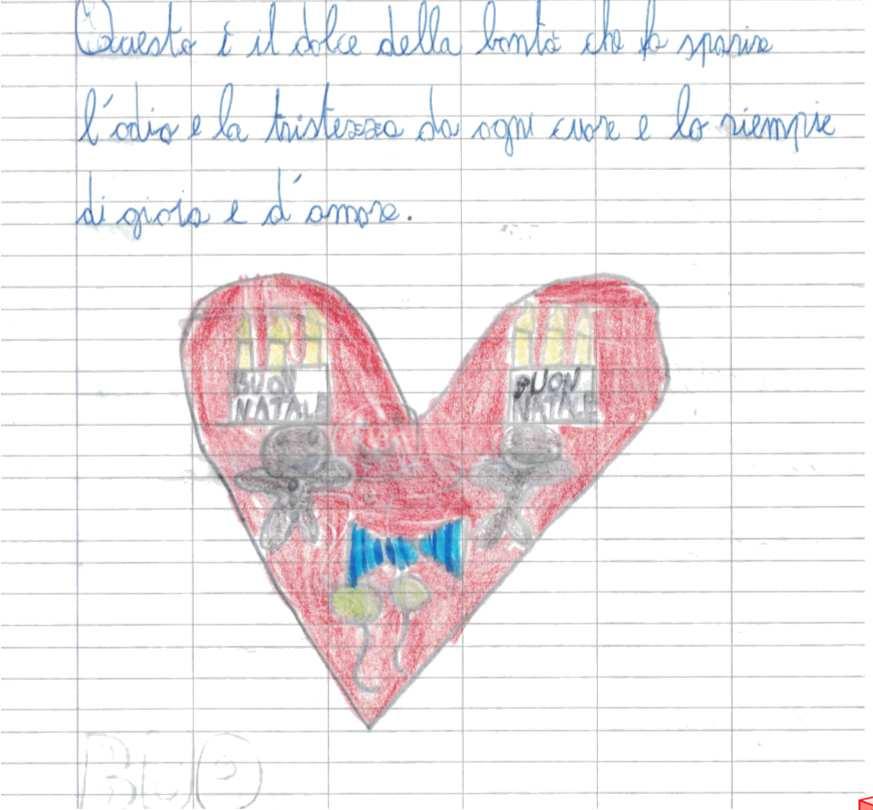 Questo è il dolce della bontà che fa sparire
l'odio e la tristezza da ogni cuore e lo riempie
di gioia e d'amore.
BUON
NATALE
BUON
NATALE